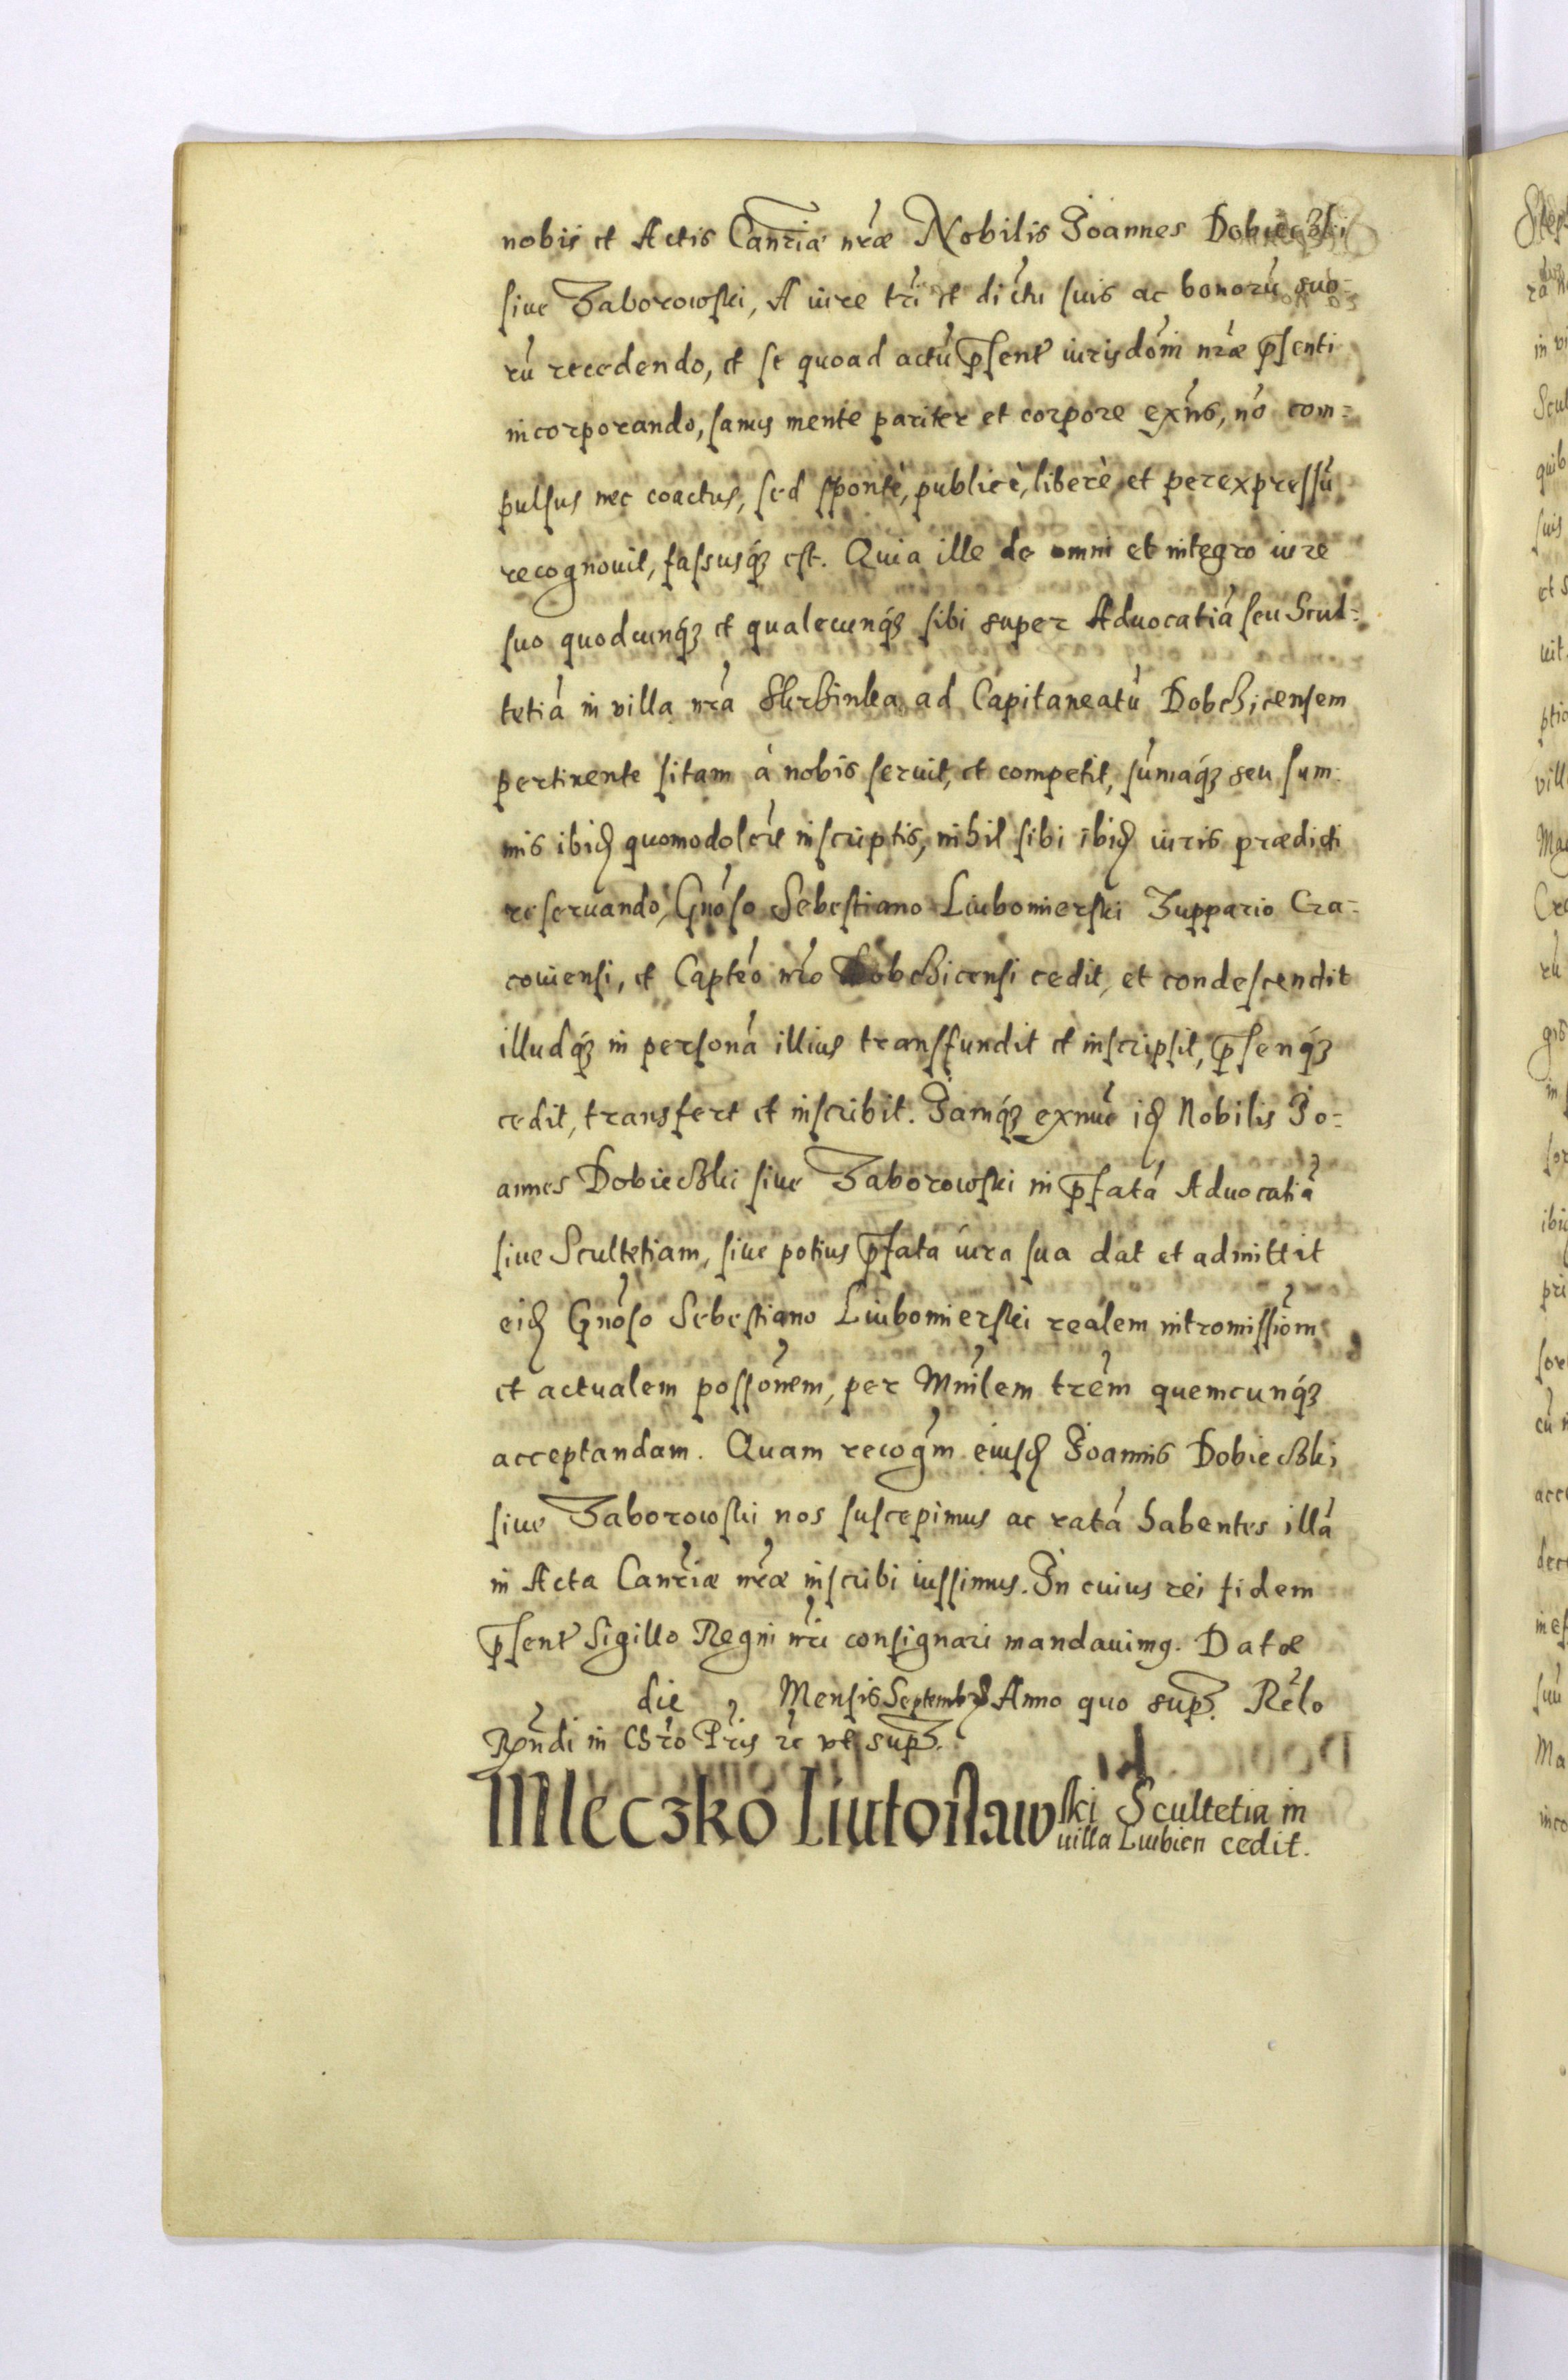 nobis et Actis Cancria nræ Nobilis Joannes Dobieczki
siue Zaborowski, A iure tri et dictu suis ac bonorú suo-
rú recedendo, et se quoad actú psent iurisdom nræ psenti
incorporando, sanus mente pariter et corpore exns, nó com-
pulsus nec coactus, sed spontè, publicè, liberè, et per expressú
recognouit, fassusq3 est. Quia ille de omni et integro iure
suo quodcunq3 et qualecunq3 sibi super Aduocatiá seu Scul-
tetiá in villa nrá Skrzinka ad Capitaneatú Dobczicensem
pertinente sitam à nobis seruit, et competit, súmaq3 seu sum-
mis ibid quomodolcut inscriptis, nihil sibi ibid iuris prædicti
reseruando, Gnoso Sebestiano Liubomierski Zuppario Cra-
couiensi, et Capteo nro Dobczicensi cedit, et condescendit
illudq3 in personá illius transfundit et inscripsit, psenq3
cedit, transfert et inscribit. Jamq3 exnuc id Nobilis Jo-
annes Dobieczki siue Zaborowski in pfatá Aduocatiá
siue Scultetiam, siue potius pfata iura sua dat et admittit
eid Gnoso Sebestiano Liubomierski realem intromissiom
et actualem possonem, per Mnilem trem quemcunq3
acceptandam. Quam recogm eiusd Joannis Dobieczki
siue Zaborowski nos suscepimus ac ratá habentes illá
in Acta Cancriæ nræ inscribi iussimus. In cuius rei fidem
psent Sigillo Regni nri consignari mandauimg. Datæ
die Mensis Septembr Anno quo sup. Relo
Rndi in Chro Pris rc vt sup.
Mleczko Liutoslawski Scultetia in
uilla Liubien cedit.